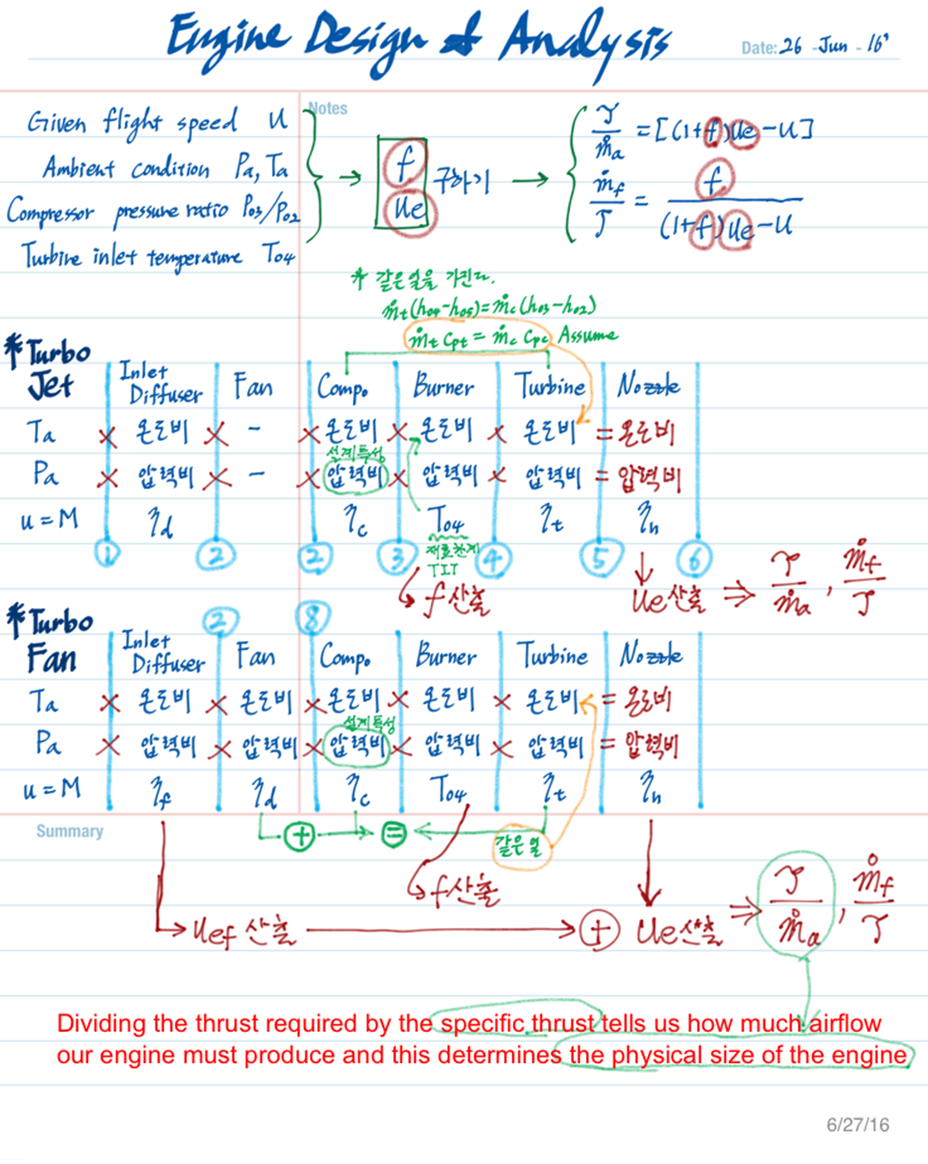 Engine Design & Analysis
Date: 26 - Jun - 16'
Notes
Given flight speed u
Ambient condition Pa, Ta
Compressor pressure ratio P03/P02
Turbine inlet temperature T04
f
ue
구하기
T/ṁa = [(1+f)ue-u]
ṁf/T = f/((1+f)ue-u)
* 같은일을 가진다.
ṁt(h04-h05)=ṁc(h03-h02)
ṁt Cpt = ṁc Cpc Assume
*Turbo Jet
Inlet Diffuser Fan Compo. Burner Turbine Nozzle
Ta × 온도비 × - × 온도비 × 온도비 × 온도비 = 온도비
설계특성
Pa × 압력비 × - × 압력비 × 압력비 × 압력비 = 압력비
u = M ηd ηc T04 ηt ηn
재료한계
TIT
① ② ② ③ ④ ⑤ ⑥
f 산출
ue 산출 ⇒ T/ṁa, ṁf/T
*Turbo Fan
② ⑧
Inlet Diffuser Fan Compo. Burner Turbine Nozzle
Ta × 온도비 × 온도비 × 온도비 × 온도비 × 온도비 = 온도비
설계특성
Pa × 압력비 × 압력비 × 압력비 × 압력비 × 압력비 = 압력비
u = M ηf ηd ηc T04 ηt ηn
Summary
+ =
같은 일
f 산출
uef 산출 + ue 산출 ⇒ T/ṁa, ṁf/T
Dividing the thrust required by the specific thrust tells us how much airflow
our engine must produce and this determines the physical size of the engine
6/27/16